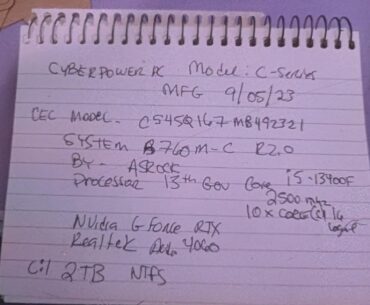 CYBERPOWER PC Model: C-Series
MFG 9/05/23
CEC Model - C545Q167-MB492321
SYSTEM B760M-C R2.0
By - ASROCK
Processor 13th Gen Core i5-13400F
2500 mhz
10 x Cores(s) 16
Logical
NVidia GForce RTX
Realtek 4060
C:\ 2TB NTFS